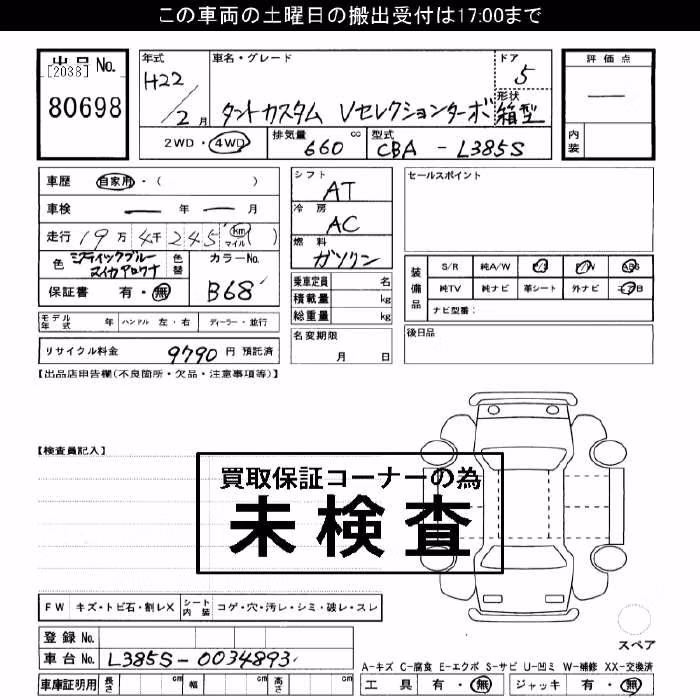 この車両の土曜日の搬出受付は17:00まで
出品 No.
[2038]
80698
年式 H22/2月
車名・グレード
タントカスタム Vセレクションターボ
ドア 5
形状 箱型
評価点
—
内装
2WD・4WD
排気量 660 cc
型式 CBA - L385S
車歴 自家用・( )
車検 — 年 — 月
走行 19万4千245 km マイル ( )
色 ミスティックブルーマイカアロワナ
色替
カラーNo. B68
保証書 有・無
シフト AT
冷房 AC
燃料 ガソリン
乗車定員 名
積載量 kg
総重量 kg
名変期限
月 日
セールスポイント
装備品
S/R 純A/W P/S P/W ABS
純TV 純ナビ 革シート 外ナビ エアB
ナビ型番:
後日品
モデル年式 年 ハンドル 左・右 ディーラー・並行
リサイクル料金 9790 円 預託済
【出品店申告欄(不良箇所・欠品・注意事項等)】
【検査員記入】
買取保証コーナーの為
未検査
FW キズ・トビ石・割レX シート内装 コゲ・穴・汚レ・シミ・破レ・スレ
登録 No.
車台 No. L385S-0034893
スペア
A-キズ C-腐食 E-エクボ S-サビ U-凹ミ W-補修 XX-交換済
車庫証明用 長さ cm 幅 cm 高さ cm
工具 有・無 ジャッキ 有・無